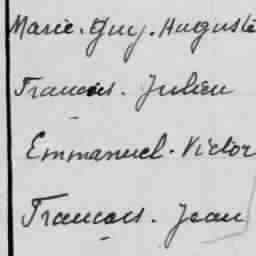 Marie. Guy. Auguste
Francois. Julien
Emmanuel. Victor
Francois. Jean